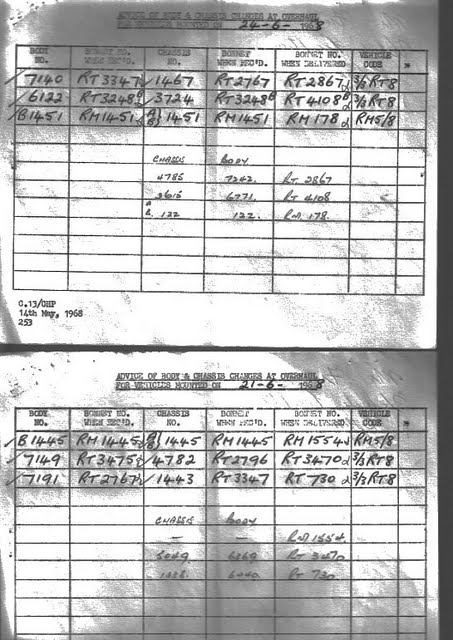 ADVICE OF BODY & CHASSIS CHANGES AT OVERHAUL
FOR VEHICLES MOUNTED ON 24-6-1968
BODY NO. BONNET NO. WHEN REC'D. CHASSIS NO. BONNET WHEN REC'D. BONNET NO. WHEN DELIVERED VEHICLE CODE
7140 RT3347 1467 RT2767 RT2867 3/3RT8
6122 RT3248 3724 RT3248 RT4108 3/3RT8
B1451 RM1451 A} B} 1451 RM1451 RM178 RM5/8
CHASSIS BODY
4785 7242. RT 2867
3615 6771. RT 4108
A B. 122 122. RM 178.
C.13/OHP
14th May, 1968
253
ADVICE OF BODY & CHASSIS CHANGES AT OVERHAUL
FOR VEHICLES MOUNTED ON 21-6-1968
BODY NO. BONNET NO. WHEN REC'D. CHASSIS NO. BONNET WHEN REC'D. BONNET NO. WHEN DELIVERED VEHICLE CODE
B1445 RM1445 A} B} 1445 RM1445 RM1554 RM5/8
7149 RT3475 4782 RT2796 RT3470 3/3RT8
7191 RT2767 1443 RT3347 RT730 3/3RT8
CHASSIS BODY
— — RM 1554.
RT 3470
RT 730